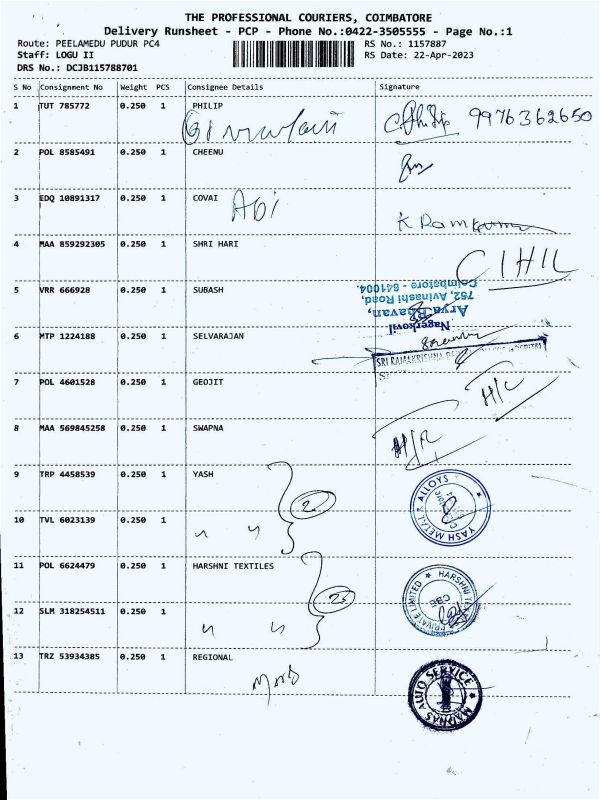 THE PROFESSIONAL COURIERS, COIMBATORE
Delivery Runsheet - PCP - Phone No.:0422-3505555 - Page No.:1
Route: PEELAMEDU PUDUR PC4
RS No.: 1157887
Staff: LOGU II
RS Date: 22-Apr-2023
DRS No.: DCJB115788701
S No Consignment No Weight PCS Consignee Details Signature
1 TUT 785772 0.250 1 PHILIP
9976362650
2 POL 8585491 0.250 1 CHEENU
3 EDQ 10891317 0.250 1 COVAI
Abi
K Ramkumar
4 MAA 859292305 0.250 1 SHRI HARI
5 VRR 666928 0.250 1 SUBASH
Nagerkovil
Arya Bhavan,
752, Avinashi Road,
Coimbatore - 641004.
6 MTP 1224188 0.250 1 SELVARAJAN
SRI RAMAKRISHNA HOSPITAL
7 POL 4601528 0.250 1 GEOJIT
H/C
8 MAA 569845258 0.250 1 SWAPNA
9 TRP 4458539 0.250 1 YASH
YASH METAL ALLOYS
10 TVL 6023139 0.250 1
11 POL 6624479 0.250 1 HARSHNI TEXTILES
HARSHNI PRIVATE LIMITED
CBE
12 SLM 318254511 0.250 1
13 TRZ 53934385 0.250 1 REGIONAL
MAANAS AUTO SERVICE